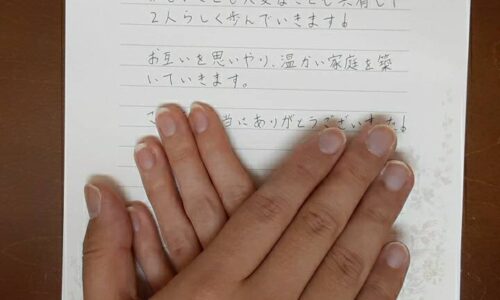 2人らしく歩んでいきます♪
お互いを思いやり、温かい家庭を築
いていきます。
当にありがとうございました♪